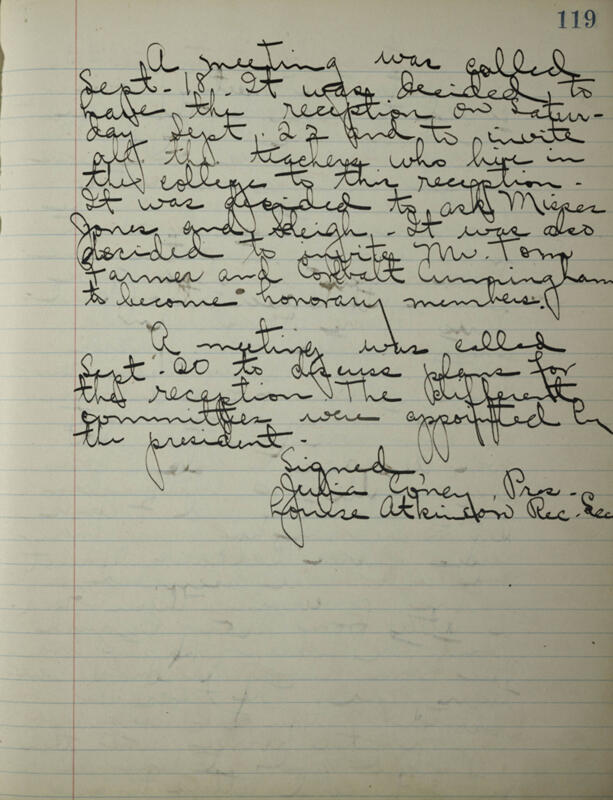 119
A meeting was called
Sept. 18. It was decided to
have the reception on Satur-
day Sept. 22 and to invite
all the teachers who live in
the college to this reception.
It was decided to ask Misses
Jones and Sleigh. It was also
decided to invite Mr. Tom
Farmer and Cunningham
to become honorary members.
A meeting was called
Sept. 20 to discuss plans for
the reception The different
committees were appointed by
the president.
Signed
Julia Coney, Pres.
Louise Atkinson Rec. Sec